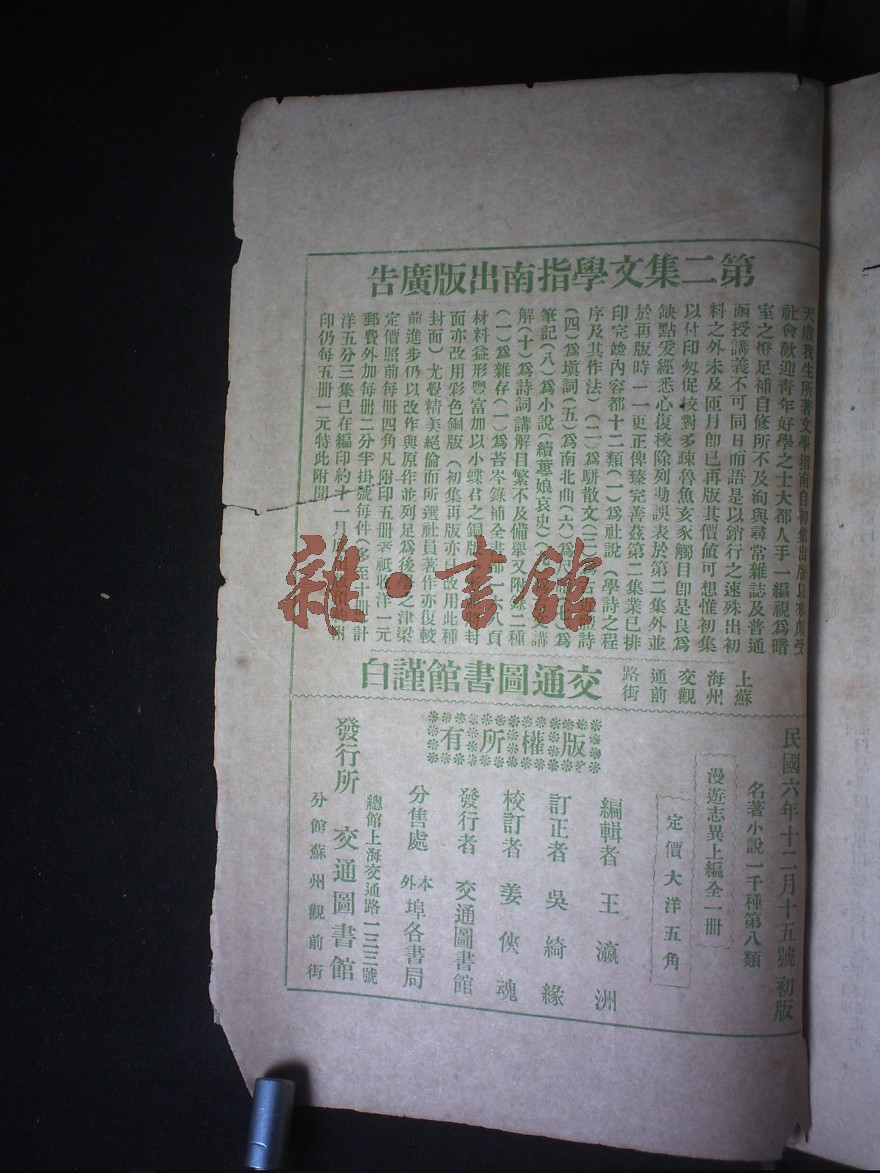 第二集文學指南出版廣告
天虛我生所著文學指南自初集出版以來頗受
社會歡迎青年好學之士大都人手一編視為暗
室之燈足補自修所不及洵與尋常雜誌及普通
函授講義不可同日而語是以銷行之速殊出初
料之外未及匝月卽已再版其價値可想惟初集
以付印匆促校對多疎魯魚亥豕觸目卽是良為
缺點爰經悉心復校除列勘誤表於第二集外並
於再版時一一更正俾臻完善茲第二集業已排
印完竣內容都十二類(一)為社說(學詩之程
序及其作法)(二)為駢散文(三)古詩
(四)為塡詞(五)為南北曲(六)為
筆記(八)為小說(續蕙娘哀史)講
解(十)為詩詞講解目繁不及備舉又附錄二種
(一)為雜存(一)為苔岑錄補全書都一六八頁
材料益形豐富加以小蝶君之銅版封
面亦改用彩色銅版(初集再版亦改用此種
封面)尤覺精美絕倫而所選社員著作亦復較
前進步仍以改作與原作並列足為後學之津梁
定價照前每冊四角凡附印五冊者祇收洋一元
郵費外加每冊二分半掛號每件(多至十冊)計
洋五分三集已在編印約十一月
印仍每五冊一元特此附聞
上海交通路
蘇州觀前街
交通圖書館謹白
民國六年十二月十五號初版
名著小說一千種第八類
漫遊志異上編全一冊
定價大洋五角
版權所有
編輯者 王瀛洲
訂正者 吳綺緣
校訂者 姜俠魂
發行者 交通圖書館
分售處 本外埠各書局
總館上海交通路一三三號
發行所 交通圖書館
分館蘇州觀前街
雜·書館